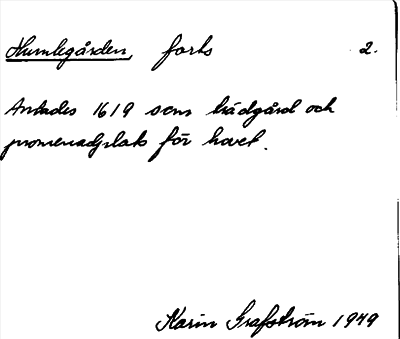 Humlegården, forts 2.
Anlades 1619 som trädgård och
promenadplats för hovet.
Karin Grafström 1949